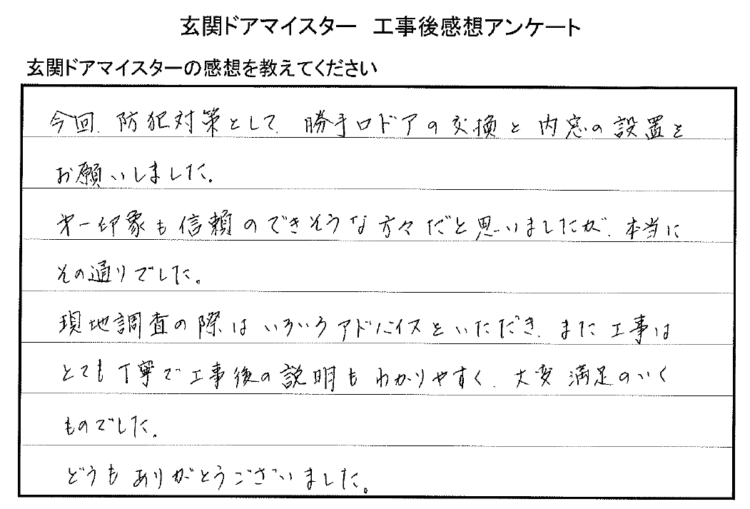 玄関ドアマイスター 工事後感想アンケート
玄関ドアマイスターの感想を教えてください
今回、防犯対策として、勝手口ドアの交換と内窓の設置を
お願いしました。
第一印象も信頼のできそうな方々だと思いましたが、本当に
その通りでした。
現地調査の際はいろいろアドバイスをいただき、また工事は
とても丁寧で工事後の説明もわかりやすく、大変満足のいく
ものでした。
どうもありがとうございました。